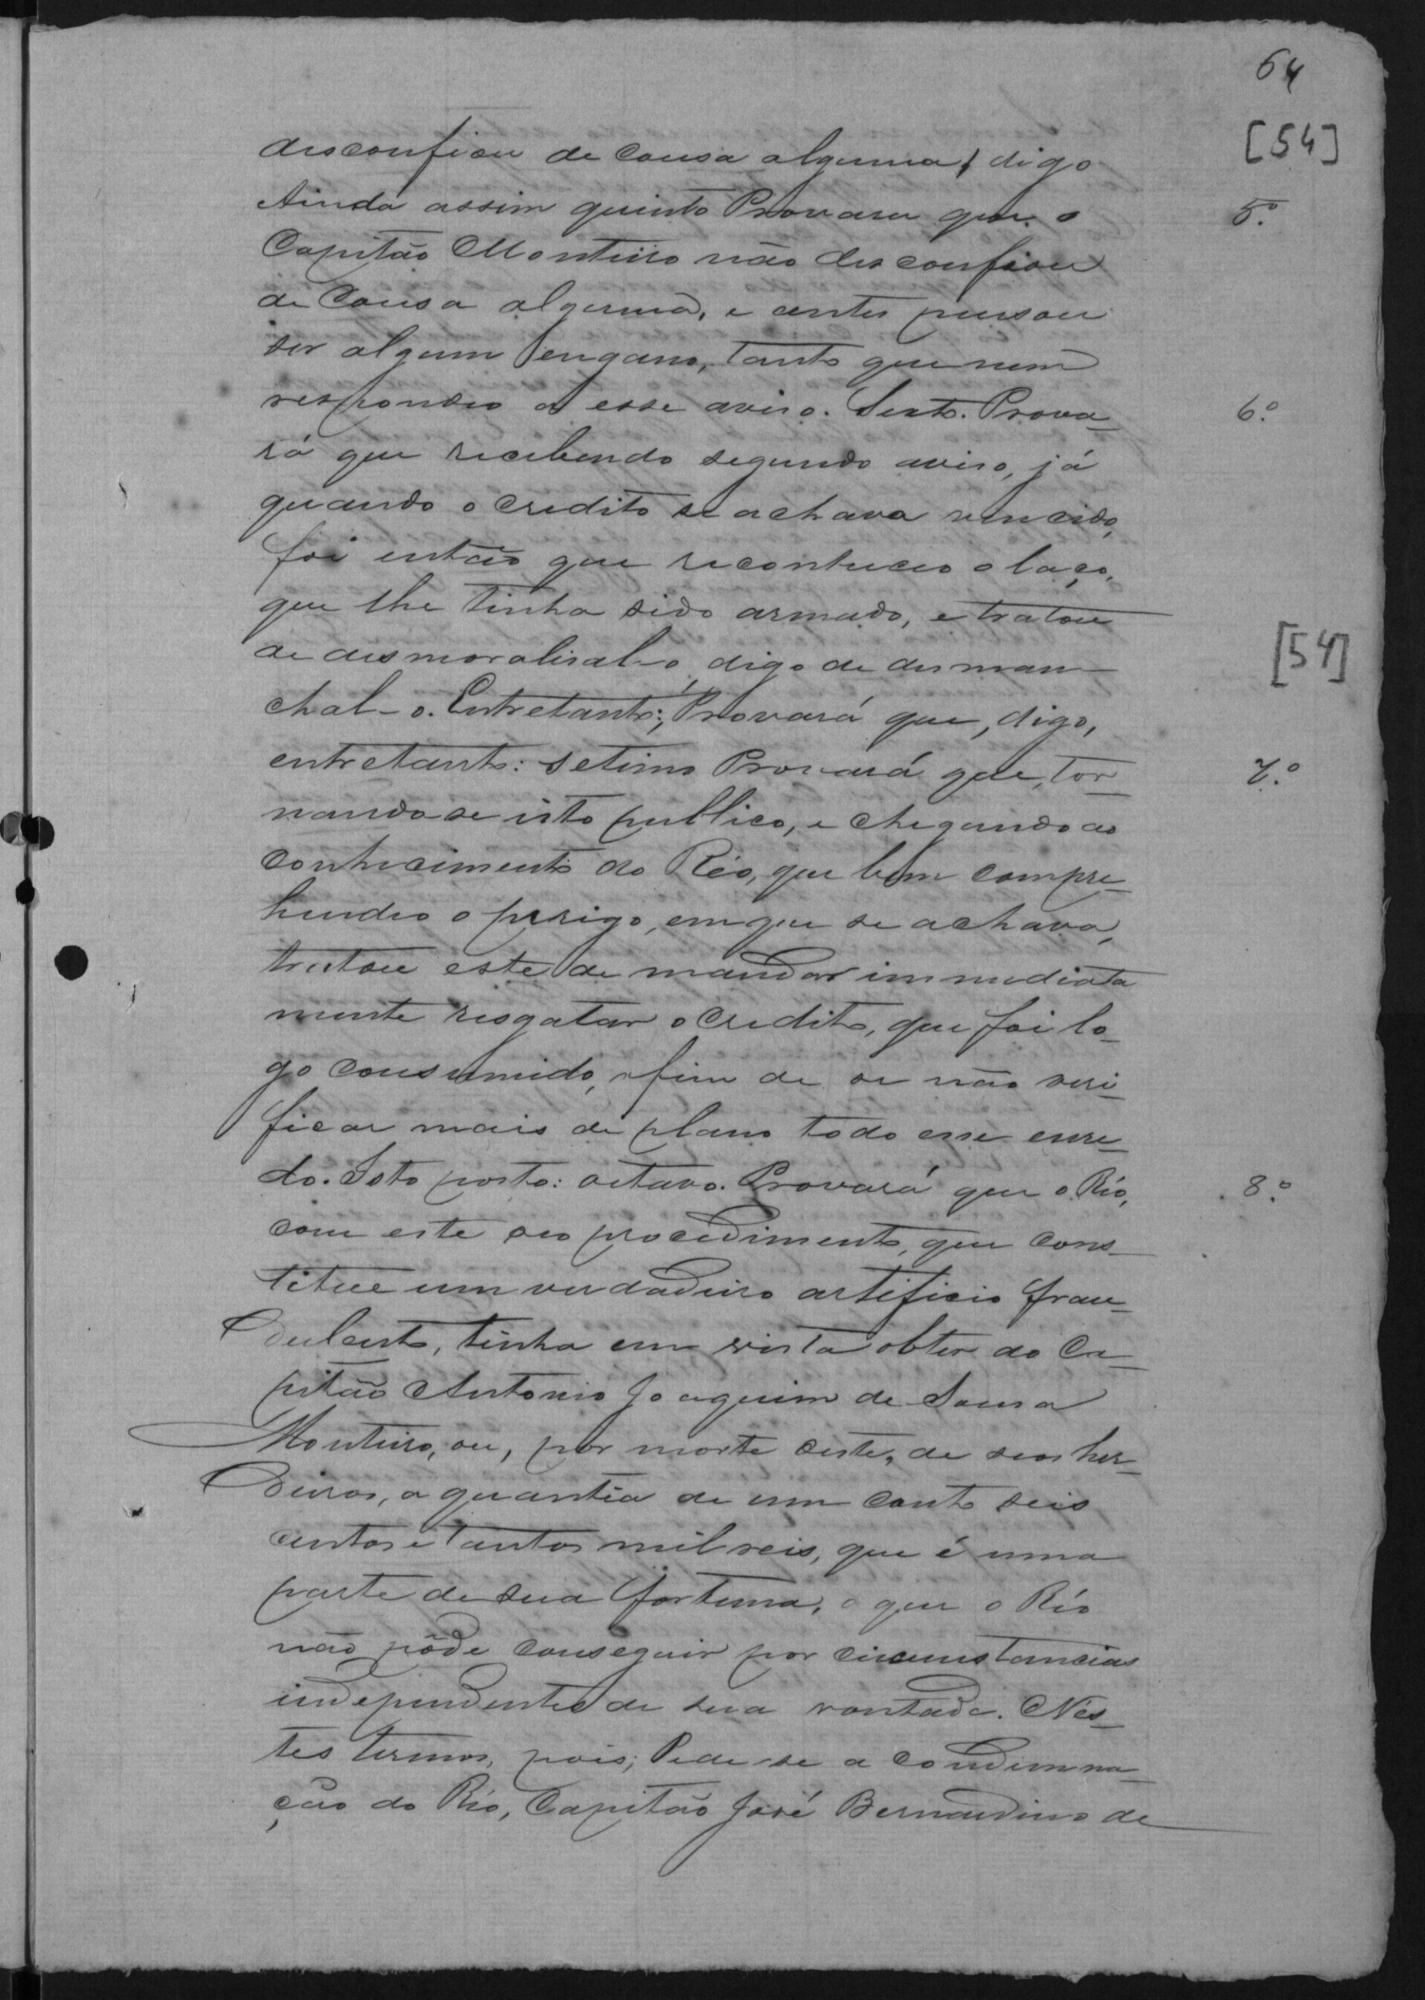 64
[54]
desconfiou de cousa alguma, digo
Ainda assim quinto Provara que o
5.º
Capitão Monteiro não desconfiou
de cousa alguma, e antes pensou
ser algum engano, tanto que nem
respondeo a esse aviso. Sexto. Prova-
6.º
rá que recebendo segundo aviso, já
quando o credito se achava vencido,
foi então que reconheceo o laço,
que lhe tinha sido armado, e tratou
de desmoralisal-o, digo de desman-
[54]
chal-o. Entretanto; Provará que, digo,
entretanto: setimo Provará que, tor-
7.º
nando-se isto publico, e chegando ao
conhecimento do Réo, que bem compre-
hendeo o perigo, em que se achava,
tratou este de mandar immediata
mente resgatar o credito, que foi lo-
go consumido, afim de se não veri-
ficar mais de plano todo esse enre-
do. Isto posto: oitavo. Provará que o Réo,
8.º
com este seo procedimento, que cons-
titue um verdadeiro artificio frau-
dulento, tinha em vista obter do Ca-
pitão Antonio Joaquim de Sousa
Monteiro, ou, por morte deste, de seos her-
deiros, a quantia de um conto seis
centos e tantos mil reis, que é uma
parte de sua fortuna, o que o Réo
não pôde conseguir por circumstancias
independentes de sua vontade. Nes-
tes termos, pois; Pede-se a condemna-
ção do Réo, Capitão José Bernardino de